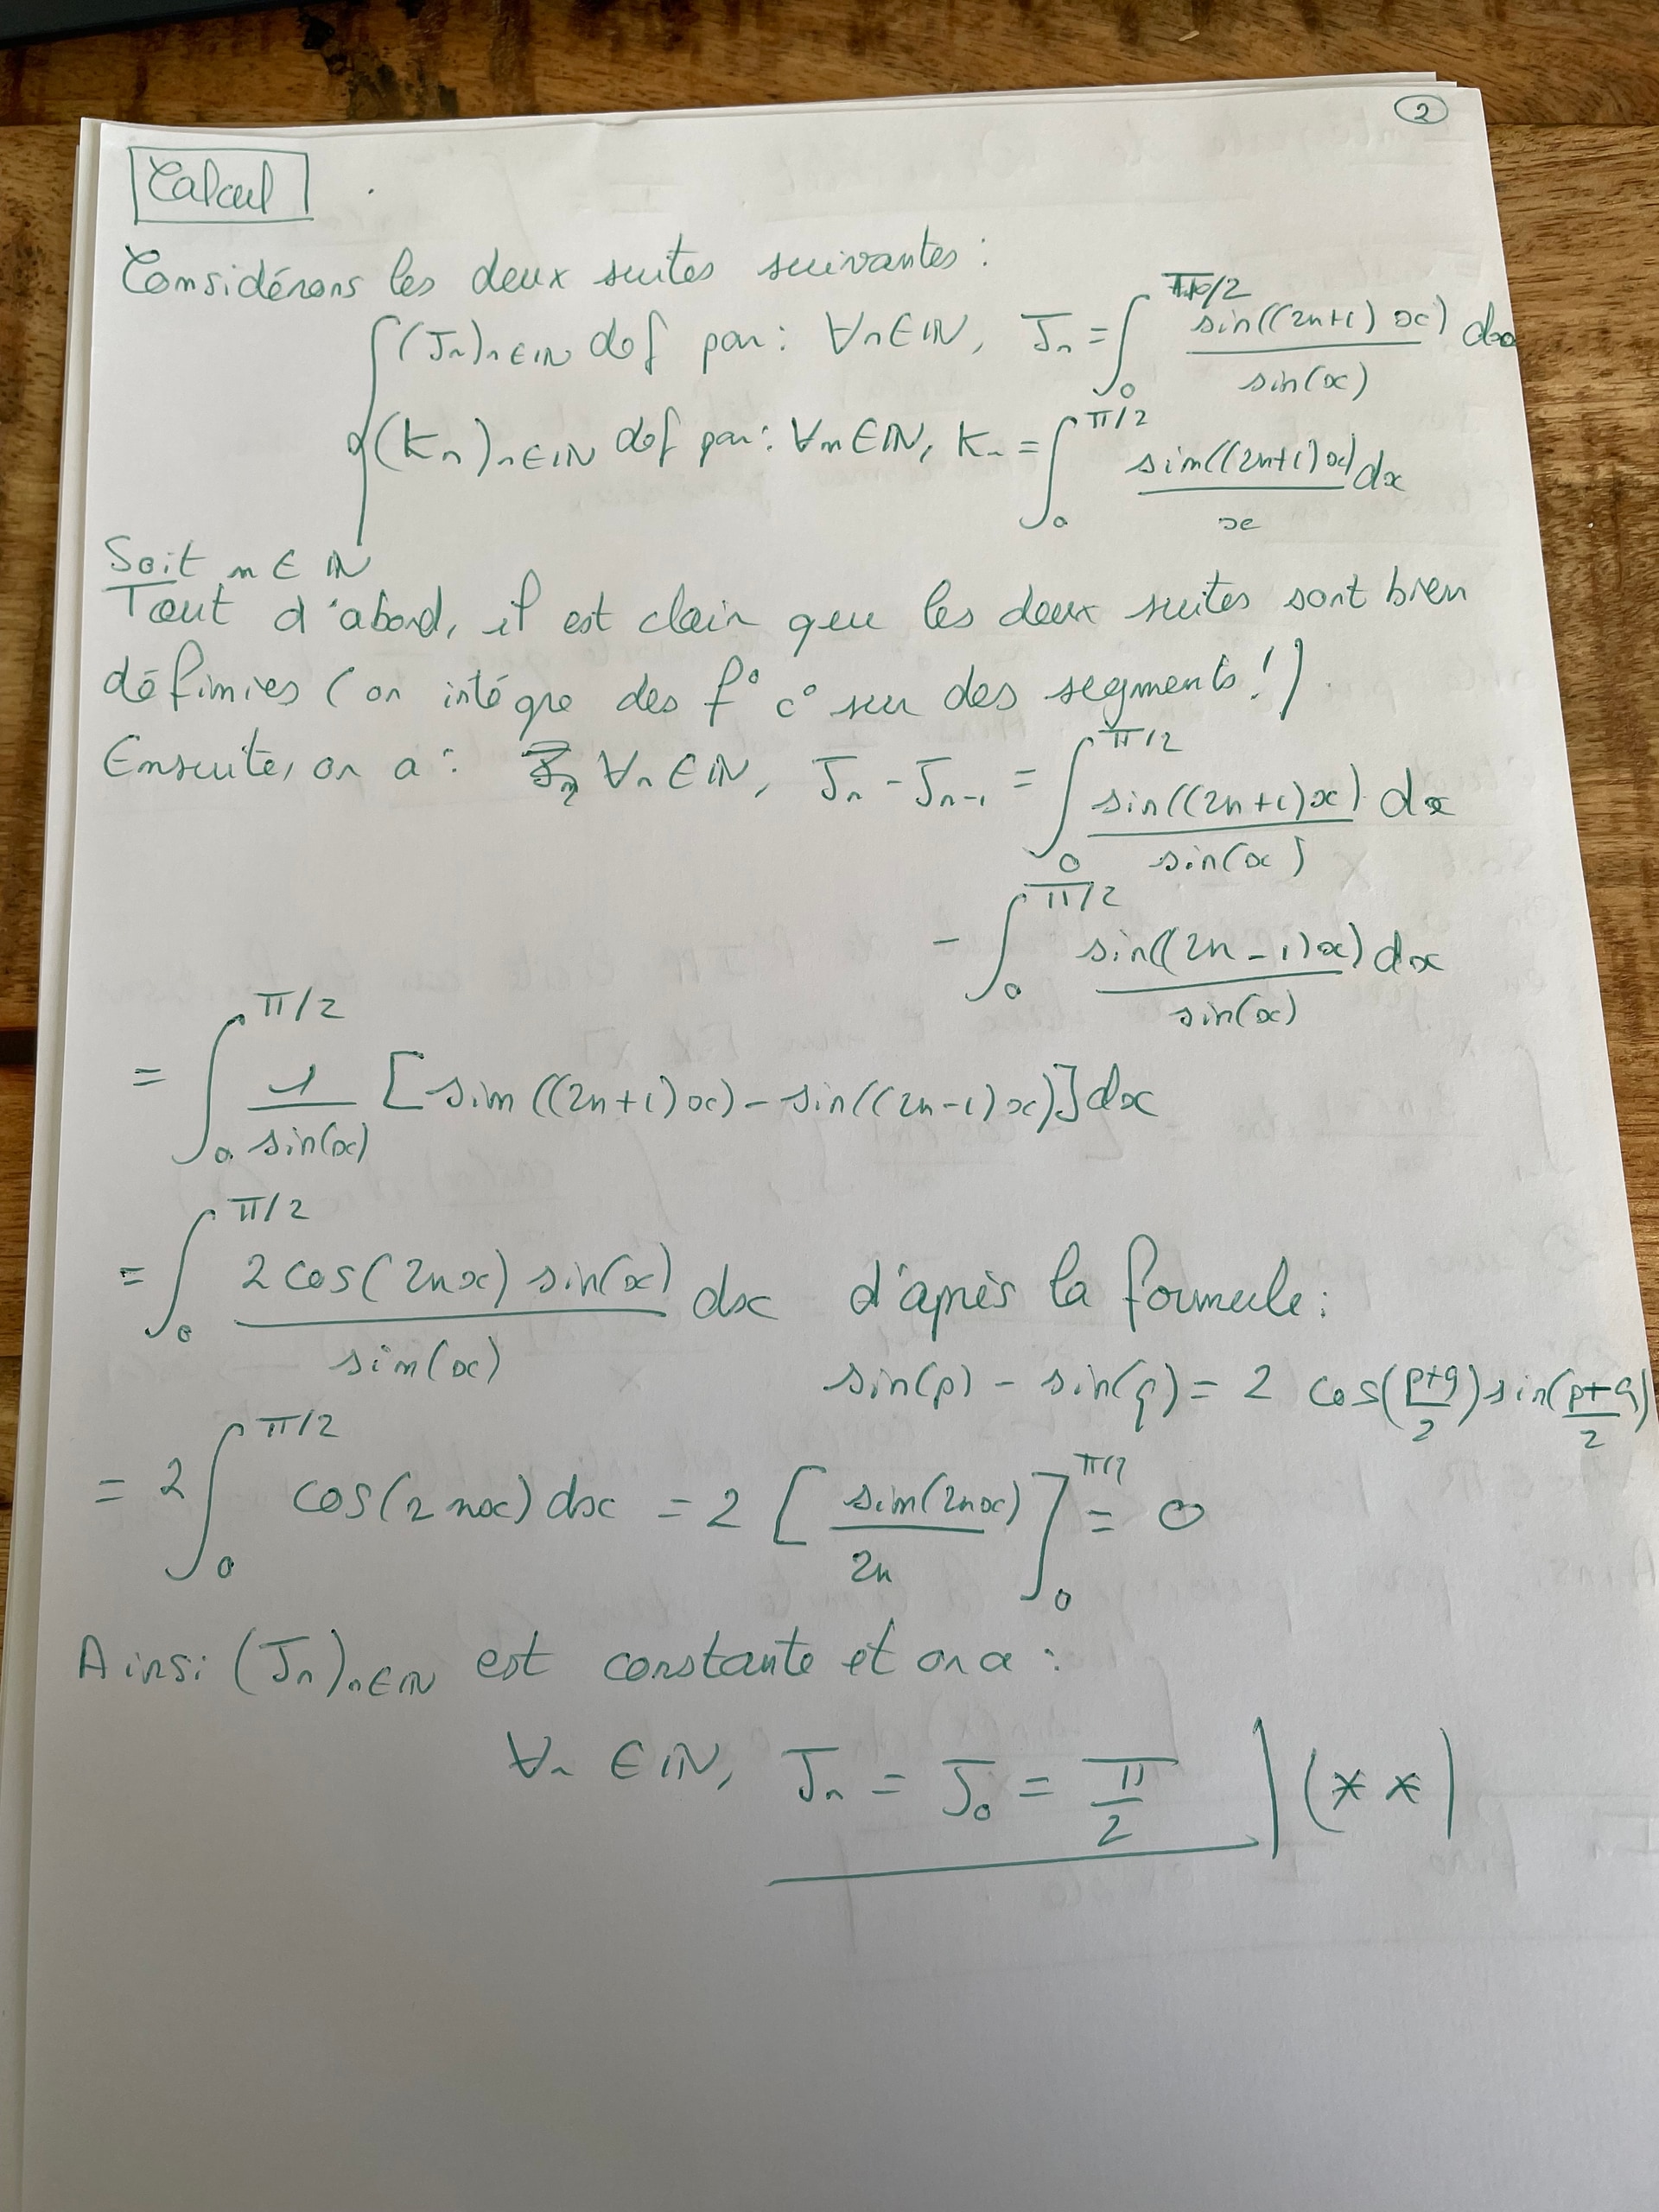 2
Calcul
Considérons les deux suites suivantes :
(Jn)n∈IN def par : ∀n∈IN, Jn = ∫₀^{π/2} sin((2n+1)x)/sin(x) dx
(Kn)n∈IN def par : ∀n∈IN, Kn = ∫₀^{π/2} sin((2n+1)x)/x dx
Soit n ∈ IN
Tout d'abord, il est clair que les deux suites sont bien
définies (on intègre des f° c° sur des segments !).
Ensuite, on a : ∀n∈IN, Jn - Jn-1 = ∫₀^{π/2} sin((2n+1)x)/sin(x) dx
- ∫₀^{π/2} sin((2n-1)x)/sin(x) dx
= ∫₀^{π/2} 1/sin(x) [sin((2n+1)x) - sin((2n-1)x)] dx
= ∫₀^{π/2} 2cos(2nx) sin(x)/sin(x) dx d'après la formule :
sin(p) - sin(q) = 2 cos((p+q)/2) sin((p+q)/2)
= 2 ∫₀^{π/2} cos(2nx) dx = 2 [sin(2nx)/2n]₀^{π/2} = 0
Ainsi (Jn)n∈IN est constante et on a :
∀n ∈ IN, Jn = J0 = π/2 (**)